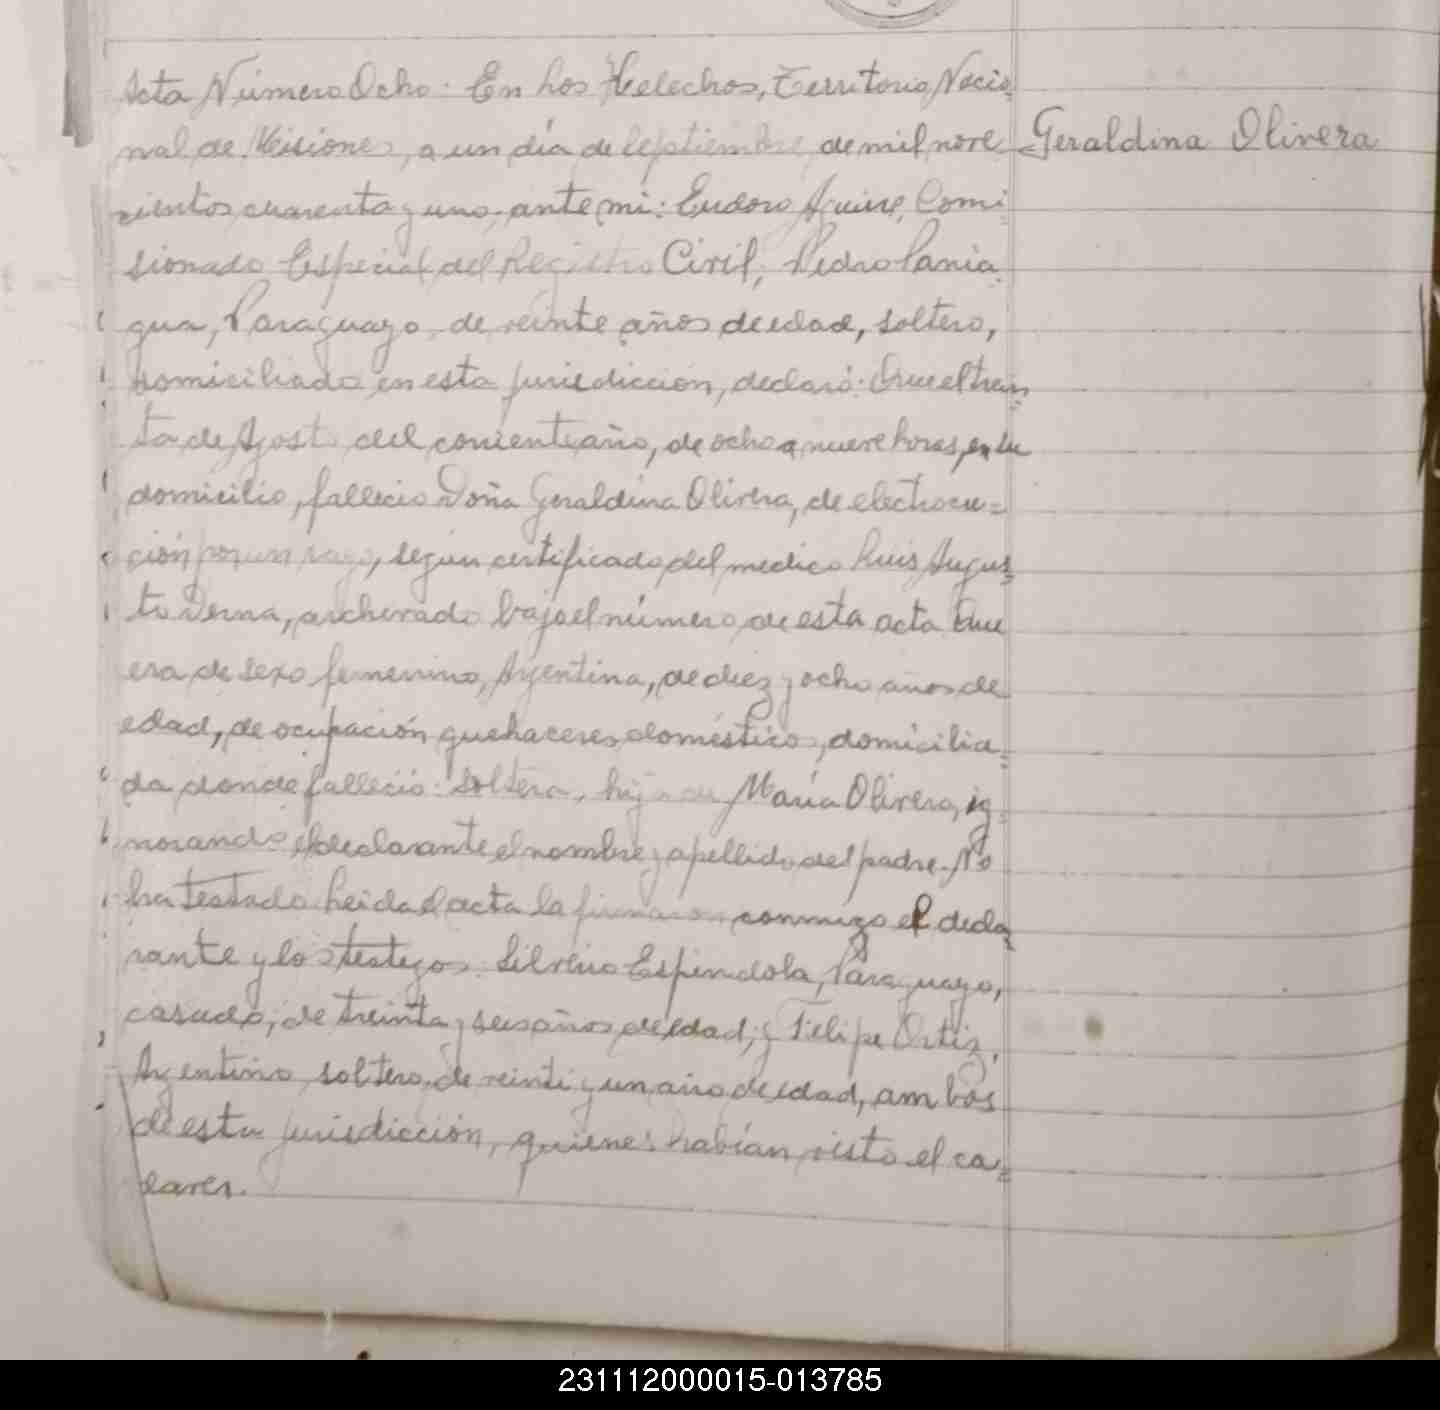 Acta Número Ocho. En Los Helechos, Territorio Nacio-
nal de Misiones, a un día de Septiembre de mil nove
cientos cuarenta y uno, ante mi: Eudoro Aguirre, Comi-
sionado Especial del Registro Civil, Pedro Pania-
gua, Paraguayo, de veinte años de edad, soltero,
domiciliado en esta jurisdicción, declaró: Que el trein=
ta de Agosto del corriente año, de ocho a nueve horas, en su
domicilio, falleció Doña Geraldina Olivera, de electrocu=
ción por un rayo, según certificado del medico Luis Augus=
to Derna, archivado bajo el número de esta acta Que
era de sexo femenino, Argentina, de diez y ocho años de
edad, de ocupación quehaceres doméstico, domicilia=
da donde falleció: Soltera, hija de María Olivera, ig=
norando el declarante el nombre y apellido del padre. No
ha testado leida el acta la firmaron conmigo el decla=
rante y los testigos: Silverio Espindola, Paraguayo,
casado, de treinta y seis años de edad; y Felipe Ortiz,
Argentino, soltero, de veinti y un año de edad, ambos
de esta jurisdicción, quienes habían visto el ca=
daver.
Geraldina Olivera
231112000015-013785